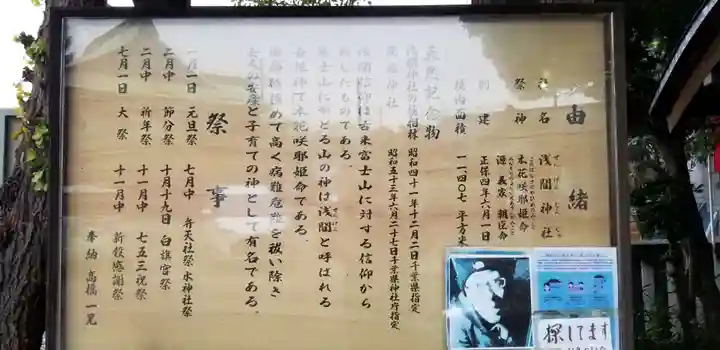 由緒
社名 浅間神社
せんげんじんじゃ
祭神 木花咲耶姫命
源義家朝臣命
創建 正保四年六月一日
境内面積 一一四〇七平方米
天然記念物
浅間神社の極相林 昭和四十一年十二月二日千葉県指定
規範神社 昭和五十三年六月二十七日千葉県神社庁指定
浅間信仰は古来富士山に対する信仰から
発したものである。
富士山にやどる山の神は浅間と呼ばれる
女性神で木花咲耶姫命である。
極めて高く病難危難を祓い除き
七人の安産と子育ての神として有名である。
祭事
一月一日 元旦祭
二月中 節分祭
二月中 祈年祭
七月一日 大祭
七月中 弁天社祭 水神社祭
十月十九日 白旗宮祭
十一月中 七五三祝祭
十一月中 新穀感謝祭
奉納 高橋一晃
探してます